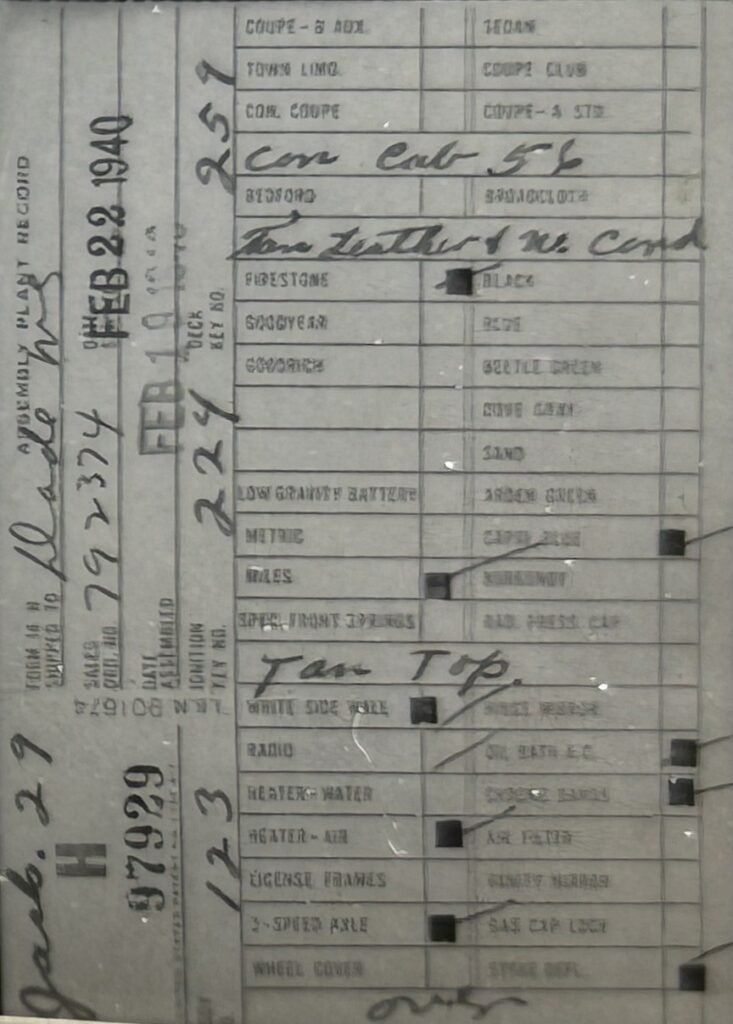 FORM 16 H
ASSEMBLY PLANT RECORD
SHIPPED TO
SALES ORD. NO. 792374
FEB 22 1940
DATE ASSEMBLED
FEB 19
IONITION KEY NO. 224
DECK KEY NO. 259
29
H
97929
123
COUPE-B AUX. SEDAN
TOWN LIMO. COUPE CLUB
CON. COUPE COUPE-A STD.
Con Cab 56
BEDFORD BROADCLOTH
Tan Leather & W. Cord
FIRESTONE BLACK
GOODYEAR BLUE
GOODRICH BEETLE GREEN
COVE GRAY
SAND
LOW GRAVITY BATTERY ARDEN GREEN
METRIC CAPRI BLUE
MILES
SPEC. FRONT SPRINGS RAD. PRESS. CAP
Tan Top.
WHITE SIDE WALL
RADIO OIL BATH A.C.
HEATER-WATER
HEATER-AIR AIR FILTER
LICENSE FRAMES
2-SPEED AXLE GAS CAP LOCK
WHEEL COVER STONE DEFL.